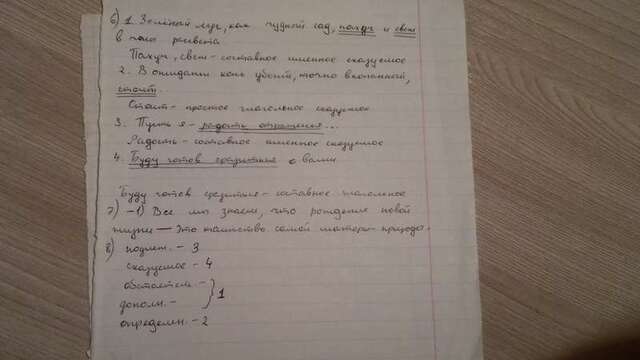 6) 1. Зелёный луг, как чудный сад, пахуч и свеж
в часы рассвета
Пахуч, свеж - составное именное сказуемое
2. В ожидании конь убогий, точно вкопанный,
стоит..
Стоит - простое глагольное сказуемое
3. Пусть я - радость отражения...
Радость - составное именное сказуемое
4. Буду готов сразиться с вами
Буду готов сразиться - составное глагольное
7) -1) Все мы знаем, что рождение новой
жизни — это таинство самой матери-природы.
8) подлеж. - 3
сказуемое - 4
обстоятельств. -
дополн. - } 1
определен. - 2